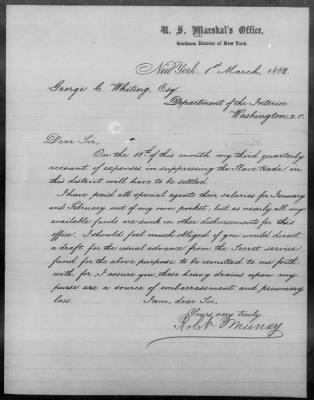 U. S. Marshal's Office,
Southern District of New York.
New York, 1st March, 1862
George C. Whiting, Esq
Department of the Interior
Washington, D.C.
Dear Sir,
On the 15th of this month my third quarterly
account of expenses in suppressing the Slave trade in
this district will have to be settled.
I have paid all special agents their salaries for January
and February out of my own pocket, but as nearly all my
available funds are sunk in other disbursements for this
office, I should feel much obliged if you would direct
a draft for the usual advance from the Secret service
fund for the above purpose to be remitted to me forth-
with, for, I assure you, these heavy drains upon my
purse are a source of embarrassment and pecuniary
loss. I am, dear Sir,
Yours, very truly
Robt Murray